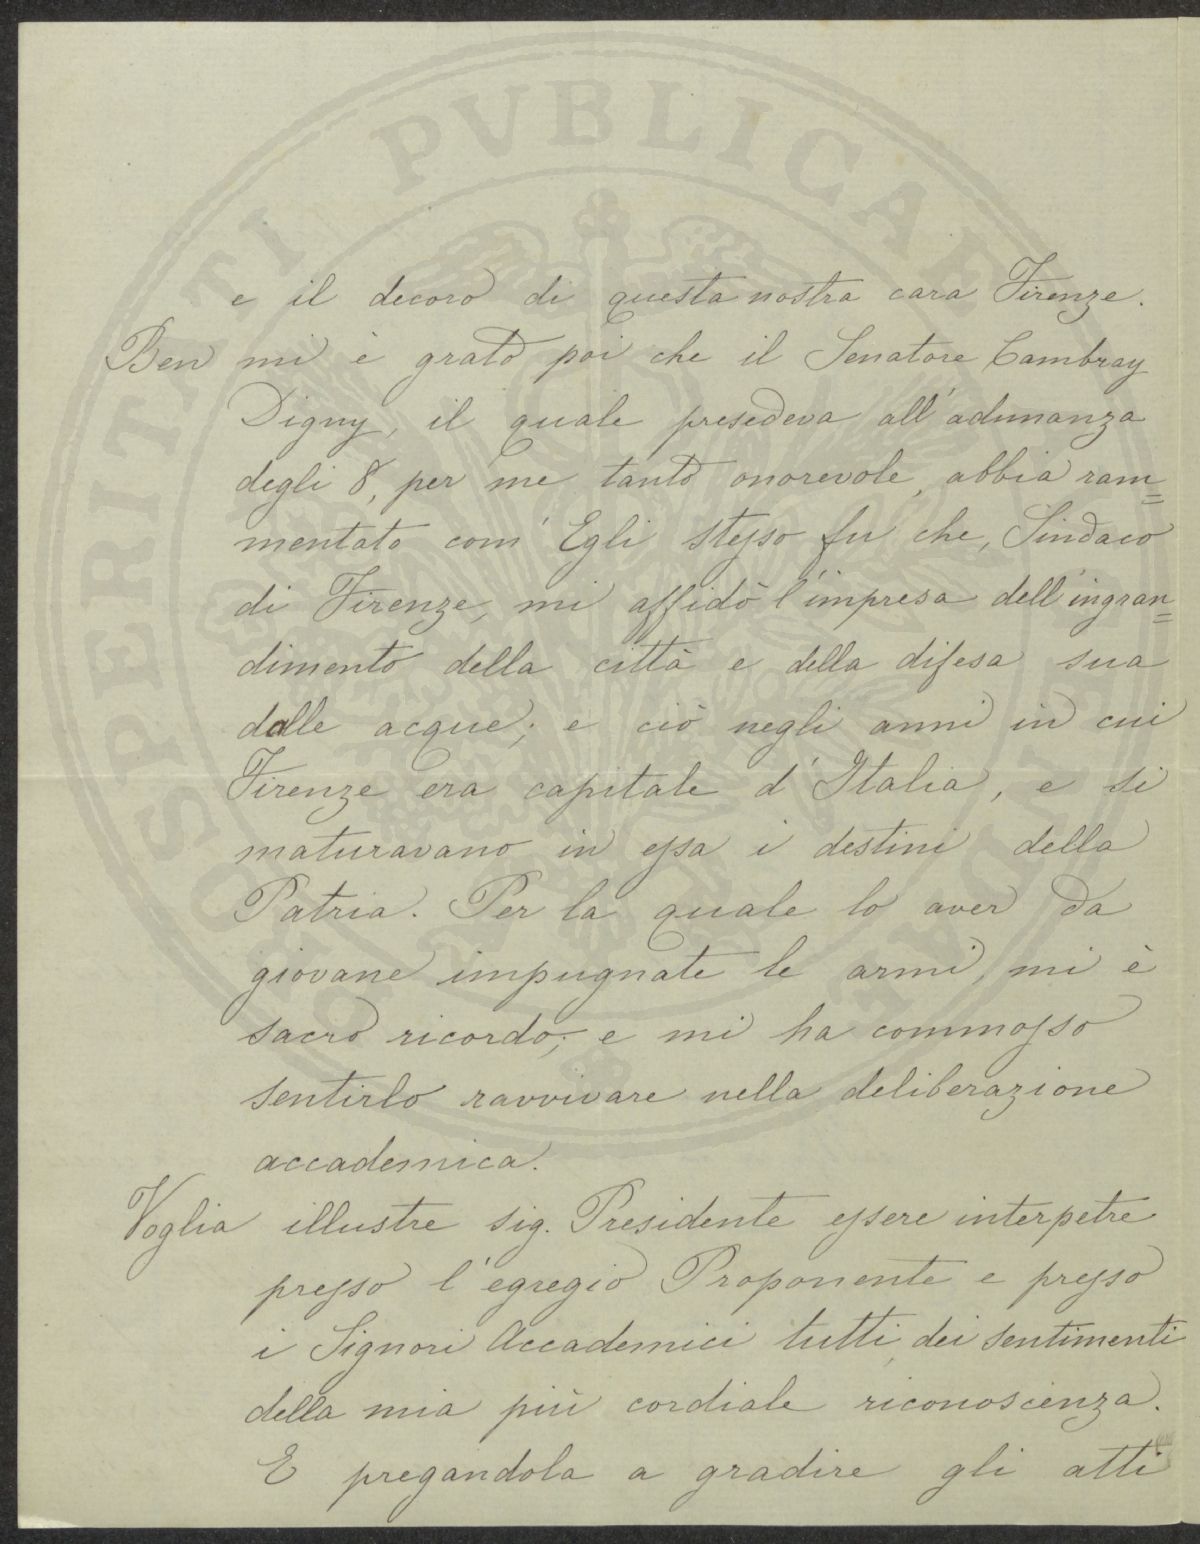 e il decoro di questa nostra cara Firenze.
Ben mi è grato poi che il Senatore Cambray
Digny, il quale presedeva all'adunanza
degli 8, per me tanto onorevole, abbia ram=
mentato com' Egli stesso fu che, Sindaco
di Firenze, mi affidò l'impresa dell'ingran=
dimento della città e della difesa sua
dalle acque; e ciò negli anni in cui
Firenze era capitale d'Italia, e si
maturavano in essa i destini della
Patria. Per la quale lo aver da
giovane impugnate le armi, mi è
sacro ricordo; e mi ha commosso
sentirlo ravvivare nella deliberazione
accademica.
Voglia illustre sig. Presidente essere interpetre
presso l'egregio Proponente e presso
i Signori Accademici tutti, dei sentimenti
della mia più cordiale riconoscenza.
E pregandola a gradire gli atti
PROSPERITATI PVBLICAE AVGENDAE